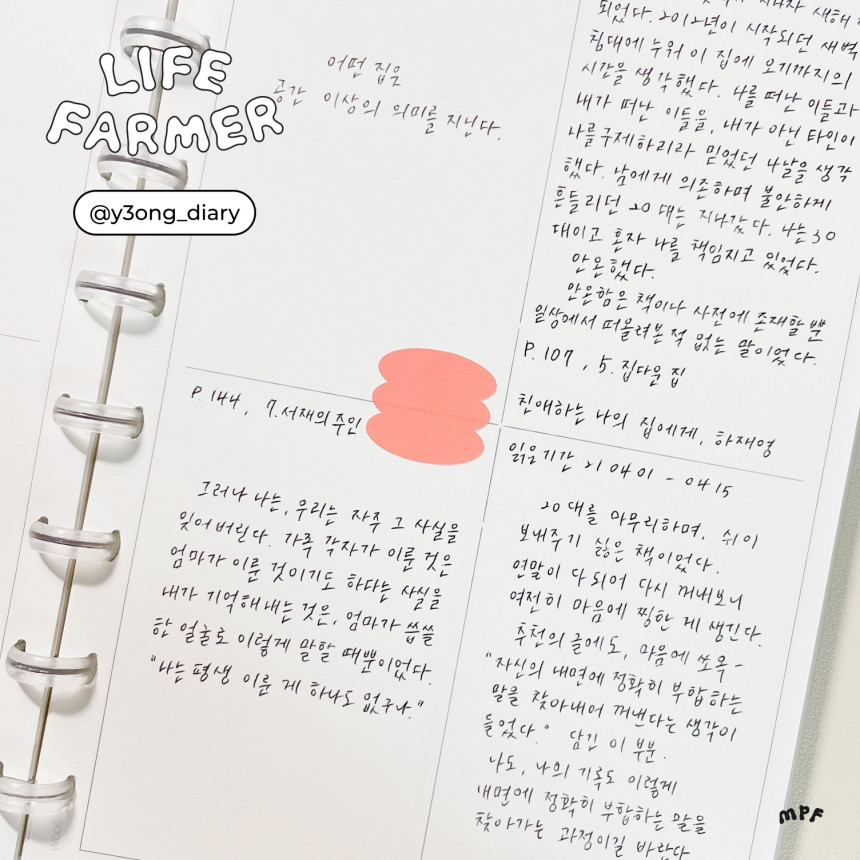 LIFE
FARMER
@y3ong_diary
어떤 집은
공간 이상의 의미를 지닌다.
P. 144, 7. 서재의 주인
그러나 나는, 우리는 자주 그 사실을
잊어버린다. 가족 각자가 이룬 것은
엄마가 이룬 것이기도 하다는 사실을
내가 기억해내는 것은, 엄마가 씁쓸
한 얼굴로 이렇게 말할 때뿐이었다.
"나는 평생 이룬 게 하나도 없구나."
새해가
되었다. 2012년이 시작되던 새벽
침대에 누워 이 집에 오기까지의
시간을 생각했다. 나를 떠난 이들과
내가 떠난 이들을, 내가 아닌 타인이
나를 구제하리라 믿었던 나날을 생각
했다. 남에게 의존하며 불안하게
흔들리던 20대는 지나갔다. 나는 30
대이고 혼자 나를 책임지고 있었다.
안온했다.
안온함은 책이나 사전에 존재할 뿐
일상에서 떠올려본 적 없는 말이었다.
P. 107, 5. 집다운 집
친애하는 나의 집에게, 하재영
읽은기간 21 04 01 - 04 15
20대를 마무리하며, 쉬이
보내주기 싫은 책이었다.
연말이 다 되어 다시 꺼내보니
여전히 마음에 찡한 게 생긴다.
추천의 글에도, 마음에 쏘옥-
"자신의 내면에 정확히 부합하는
말을 찾아내어 꺼낸다는 생각이
들었다." 담긴 이 부분.
나도, 나의 기록도 이렇게
내면에 정확히 부합하는 말을
찾아가는 과정이길 바란다
MPF